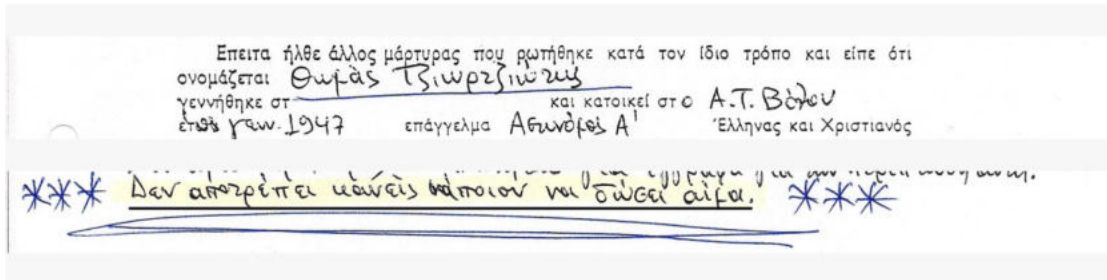 Επειτα ήλθε άλλος μάρτυρας που ρωτήθηκε κατά τον ίδιο τρόπο και είπε ότι
ονομάζεται Θωμάς Τζιωρτζιώτης
γεννήθηκε στ και κατοικεί στο Α.Τ. Βόλου
έτος γεν. 1947 επάγγελμα Αστυνόμος Α' Έλληνας και Χριστιανός
για έγγραφα για την
*** Δεν αποτρέπει κανείς κάποιον να δώσει αίμα. ***